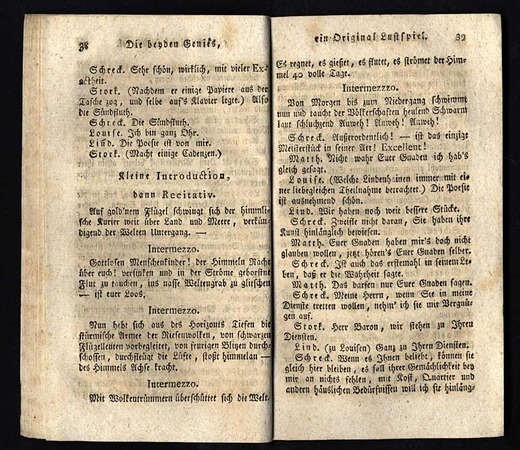 38 Die beyden Genies,
Schreck. Sehr schön, wirklich, mit vieler Ex-
actheit.
Stork. (Nachdem er einige Papiere aus der
Tasche zog, und selbe auf's Klavier legte.) Also
die Sündfluth.
Schreck. Die Sündfluth.
Louise. Ich bin ganz Ohr.
Lind. Die Poesie ist von mir.
Stork. (Macht einige Cadenzen.)
Kleine Introduction,
dann Recitativ.
Auf gold'nem Flügel schwingt sich der himmli-
sche Kurier weit über Land und Meere, verkün-
digend der Welten Untergang. —
Intermezzo.
Gottlosen Menschenkinder! der Himmeln Rache
über euch! versinken und in der Ströme geborstne
Flut zu tauchen, ins nasse Weltengrab zu glitschen
— ist euer Loos.
Intermezzo.
Nun hebt sich aus des Horizonts Tiefen die
stürmische Armee der Riesenwolken, von schwarzen
Flüzelleuten vorbegleitet, von feurigen Blitzen durch-
schossen, durchfleugt die Lüfte, stoßt himmelan —
des Himmels Achse kracht.
Intermezzo.
Mit Wolkentrümmern überschüttet sich die Welt.
ein Original Lustspiel. 39
Es regnet, es gießet, es flutet, es strömet der Him-
mel 40 volle Tage.
Intermezzo.
Von Morgen bis zum Niedergang schwimmt
nun und taucht der Völkerschaften heulend Schwarm
laut schluchzend Auweh! Auweh! Auweh!
Schreck. Außerordentlich! — ist das einzige
Meisterstück in seiner Art! Excellent!
Matth. Nicht wahr Euer Gnaden ich hab's
gleich gesagt.
Louise. (Welche Lindenhainen immer mit ei-
ner liebegleichen Theilnahme betrachtet.) Die Poesie
ist ausnehmend schön.
Lind. Wir haben noch weit bessere Stücke.
Schreck. Zweifle nicht daran, Sie haben ihre
Kunst hinlänglich bewiesen.
Matth. Euer Gnaden haben mir's doch nicht
glauben wollen, jetzt hören's Euer Gnaden selber.
Schreck. Ist auch das erstemahl in seinem Le-
ben, daß er die Wahrheit sagte.
Matth. Das darfen nur Euer Gnaden sagen.
Schreck. Meine Herrn, wenn Sie in meine
Dienste tretten wollen, nehm' ich sie mit Vergnü-
gen auf.
Stork. Herr Baron, wir stehen zu Ihren
Diensten.
Lind. (zu Louisen) Ganz zu Ihren Diensten.
Schreck. Wenn es Ihnen beliebt, können sie
gleich hier bleiben, es soll ihrer Gemächlichkeit bey
mir an nichts fehlen, mit Kost, Quartier und
andern häuslichen Bedürfnissen will ich sie hinläng-